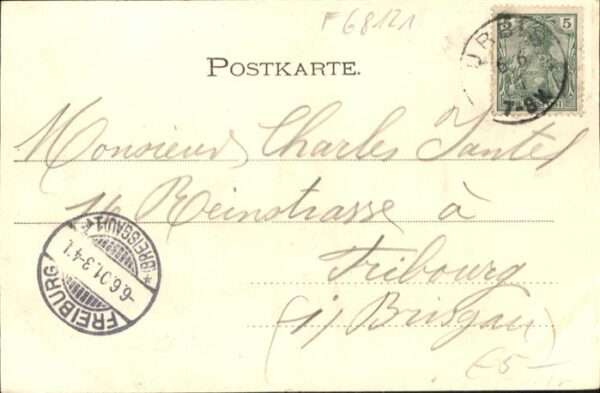 F 68121
5 5
URB
6 6
7-8 N.
POSTKARTE.
Monsieur Charles Jantel
16 Reinstrasse à
Fribourg
(i/ Brisgau)
FREIBURG
*(BREISGAU)1*
6.6.01.3-4.
€5-